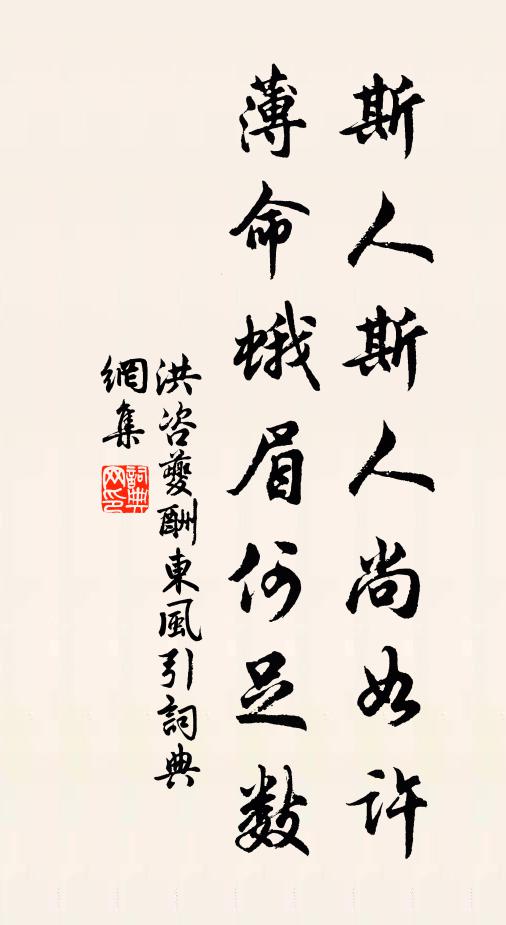 斯人斯人尚如許
薄命蛾眉何足數
洪咨夔酬東風引詞典
網集
詞典網印